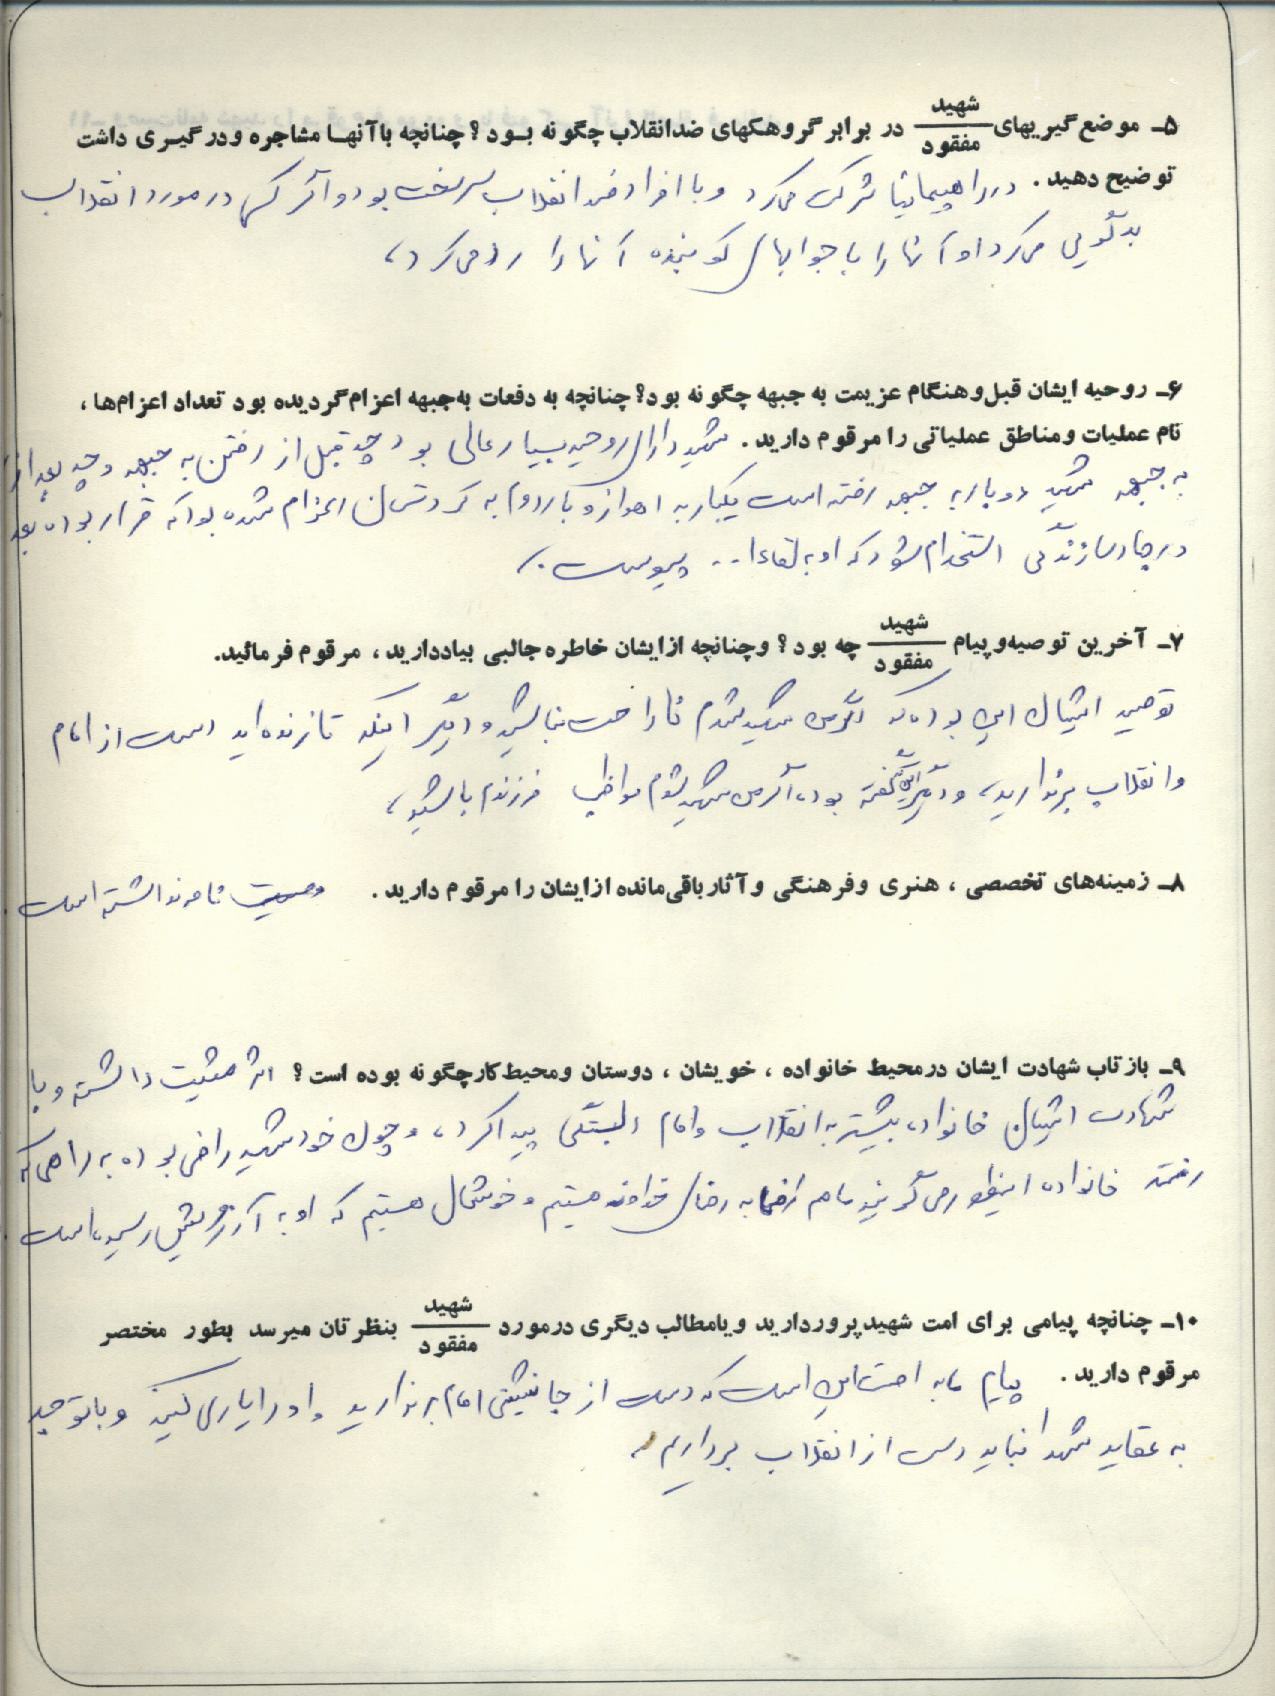 ۵ـ موضع گیریهای شهید/مفقود در برابر گروهکهای ضدانقلاب چگونه بود؟ چنانچه باآنها مشاجره ودرگیری داشت
توضیح دهید. در راهپیمائیها شرکت می‌کرد و با افراد ضد انقلاب سرسخت بود و اگر کسی در مورد انقلاب
بدگویی می‌کرد او آنها را با جوابهای کوبنده آنها را رد می‌کرد،
۶ـ روحیه ایشان قبل و هنگام عزیمت به جبهه چگونه بود؟ چنانچه به دفعات به‌جبهه اعزام گردیده بود تعداد اعزام‌ها،
نام عملیات و مناطق عملیاتی را مرقوم دارید. شهید دارای روحیه بسیار عالی بود چه قبل از رفتن به جبهه و چه بعد از
به جبهه شهید دوبار به جبهه رفته است یکبار به اهواز و بار دوم به کردستان اعزام شده بود که قرار بوده بعد
در جهاد سازندگی استخدام شود که او به لقاءا... پیوست.
۷ـ آخرین توصیه‌و پیام شهید/مفقود چه بود؟ وچنانچه ازایشان خاطره جالبی بیاددارید، مرقوم فرمائید.
توصیه ایشان این بوده که اگر من شهید شدم ناراحت نباشید و دیگر اینکه تا زنده‌اید دست از امام
و انقلاب برندارید، و دیگر این گفته بود، اگر من شهید شوم مواظب فرزندم باشید،
۸ـ زمینه‌های تخصصی، هنری وفرهنگی و آثارباقی‌مانده ازایشان را مرقوم دارید. وصیت نامه نداشته است.
۹ـ بازتاب شهادت ایشان درمحیط خانواده، خویشان، دوستان ومحیط کارچگونه بوده است؟ اثر مثبت داشته و با
شهادت ایشان خانواده بیشتر به انقلاب و امام دلبستگی پیدا کرد، و چون خود شهید راضی بوده به راهی که
رفته خانواده اینطور می‌گویند ما هم راضی به رضای خداوند هستیم و خوشحال هستیم که او به آرزویش رسیده است.
۱۰ـ چنانچه پیامی برای امت شهیدپرور دارید ویامطالب دیگری درمورد شهید/مفقود بنظرتان میرسد بطور مختصر
مرقوم دارید. پیام ما به امت این است که دست از جانشین امام برندارید و او را یاری کنید و با توجه
به عقاید شهدا نباید دست از انقلاب برداریم.